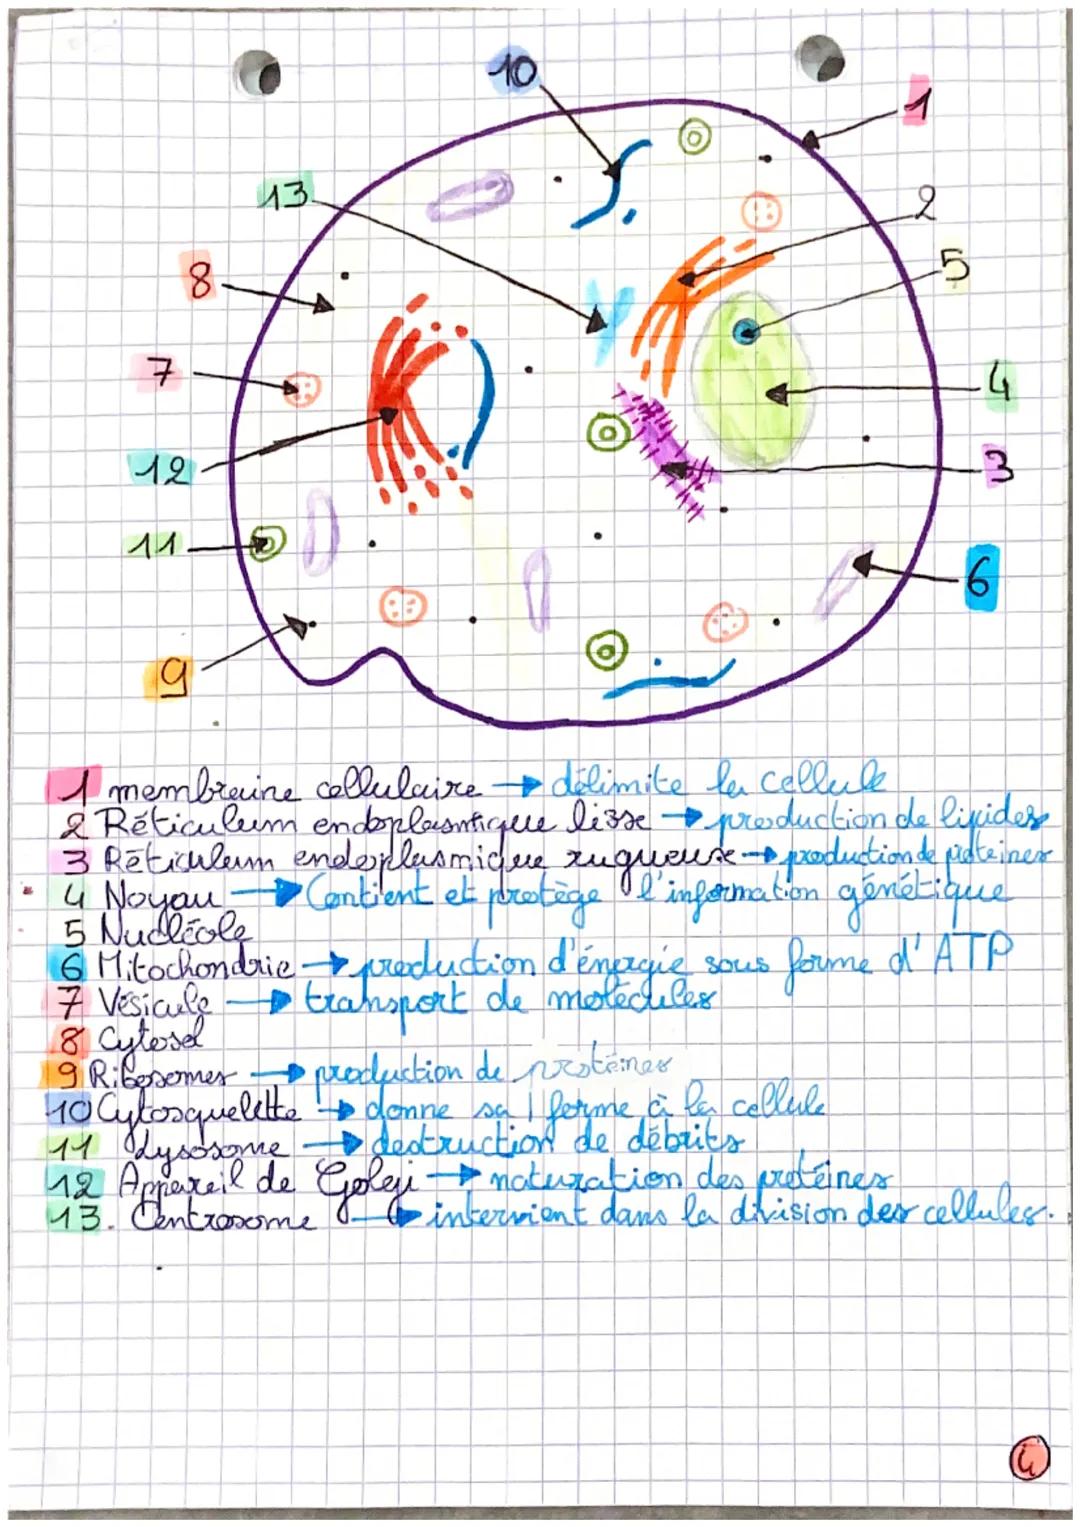 10
1
13
2
8
5
7
4
12
3
11
6
9
1 membraine cellulaire → délimite la cellule
2 Réticulum endoplasmique lisse → production de lipides
3 Réticulum endoplasmique rugueuse → production de protéines
4 Noyau → Contient et protège l'information génétique
5 Nucléole
6 Mitochondrie → production d'énergie sous forme d'ATP
7 Vésicule → transport de molécules
8 Cytosol
9 Ribosomes → production de protéines
10 Cytosquelette → donne sa forme à la cellule
11 Lysosome → destruction de débrits
12 Appareil de Golgi → maturation des protéines
13. Centrosome → intervient dans la division des cellules.
4